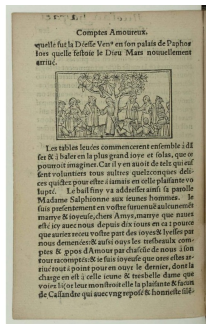 Comptes Amoureux.
quelle fut la Déesse Venꝰ en son palais de Paphos
lors quelle festoie le Dieu Mars nouuellement
arriué.
Les tables leuées commencerent ensemble à dã
ser & à baler en la plus grand ioye et solas, que ce
pourroit imaginer. Car il y en auoit de telz qui eus
sent voluntiers tous aultres quelzconques delices
quictez pour estre à iamais en celle plaisante vo
lupté. Le bal finy va addresser ainsi sa parolle
Madame Salphionne aux ieunes hommes. Ie
suis presentement en vostre
mantz & ioyeuse, chers Amys, que nous
est icy auec nous depuis dix iours en ça pource
que auriez receu vostre part des ioyes & lyesses par
nous demenées: & aussi ouys les tresbeaulx com
ptes & ppos d'Amour par chascune de nous à son
tour racomptés: & ie suis ioyeuse que ores estes ar
riué tout à point pour en ouyr le dernier, dont la
charge en est à celle ieune & tresbelle dame que
voiez
de Cassandre qui auec vng reposé & honneste